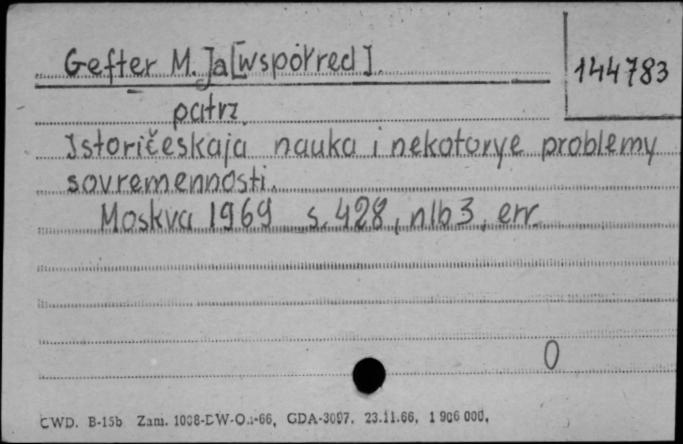 Gefter M. Ja [współred].
144783
patrz
Istoričeskaja nauka i nekotorye problemy
sovremennosti.
Moskva 1969 s. 428, nlb 3, err.
0
CWD. B-15b Zam. 1008-DW-O.:-66, GDA-3097, 23.11.66, 1 906 000,